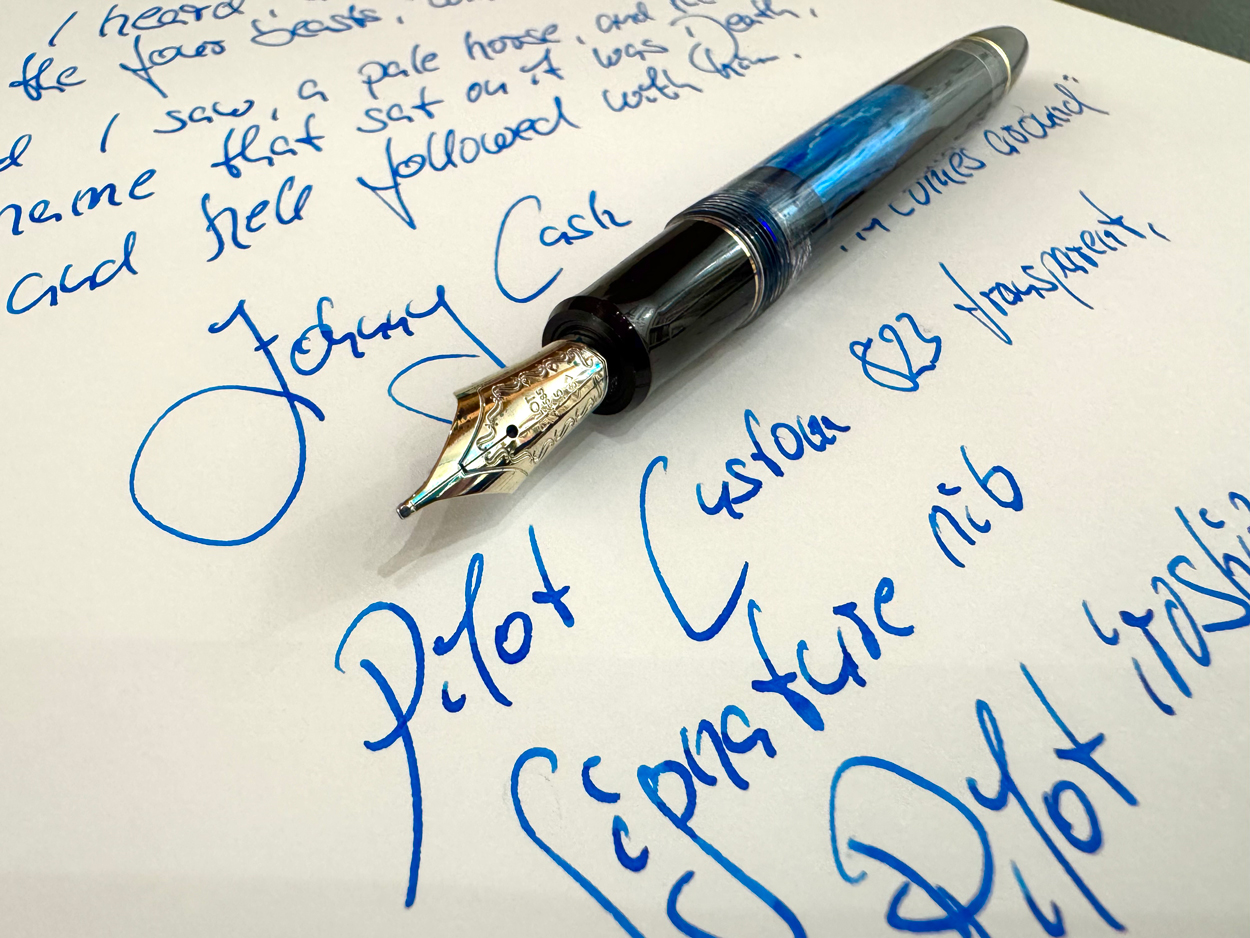 I heard,
the four beasts,
I saw, a pale horse, and
name that sat on it was Death,
and hell followed with him.
Johnny Cash
... comes around"
Pilot Custom 823 transparent,
Signature nib
Pilot iroshi